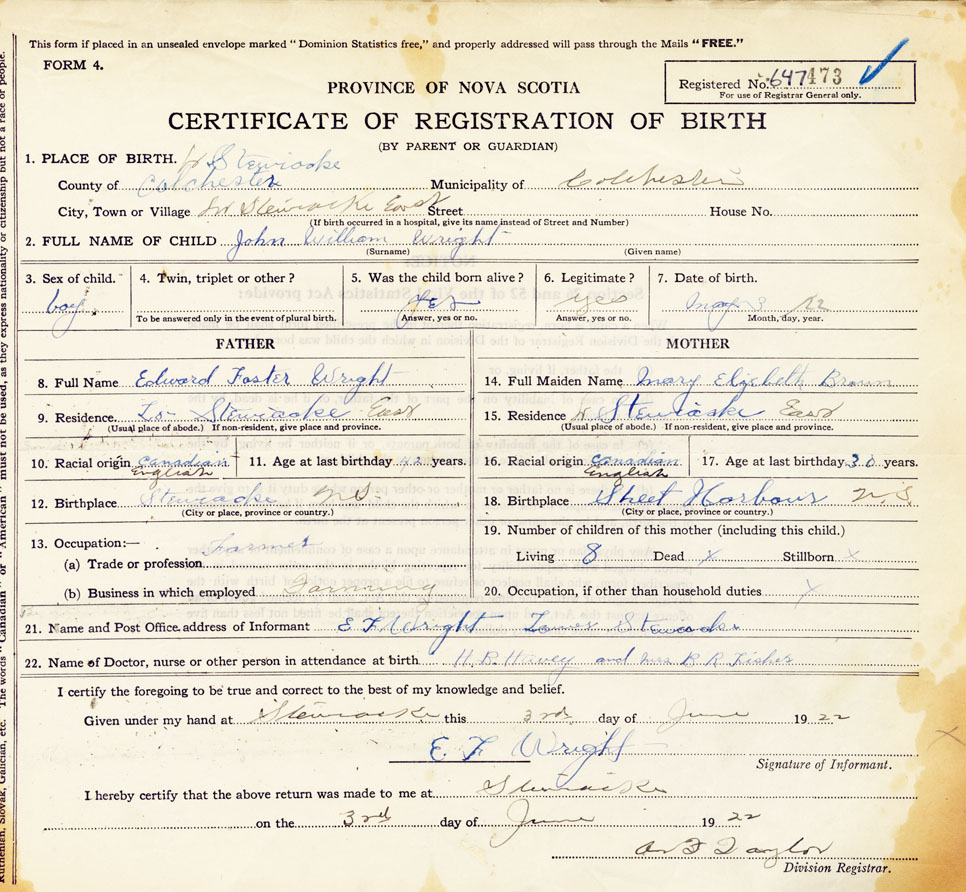 This form if placed in an unsealed envelope marked "Dominion Statistics free," and properly addressed will pass through the Mails "FREE."
FORM 4.
Registered No. 647473
For use of Registrar General only.
PROVINCE OF NOVA SCOTIA
CERTIFICATE OF REGISTRATION OF BIRTH
(BY PARENT OR GUARDIAN)
1. PLACE OF BIRTH. Stewiacke
County of Colchester Municipality of Colchester
City, Town or Village Stewiacke East Street House No.
(If birth occurred in a hospital, give its name instead of Street and Number)
2. FULL NAME OF CHILD John William Wright
(Surname) (Given name)
3. Sex of child. 4. Twin, triplet or other? 5. Was the child born alive? 6. Legitimate? 7. Date of birth.
boy yes yes May 3 22
To be answered only in the event of plural birth. Answer, yes or no. Answer, yes or no. Month, day, year.
FATHER MOTHER
8. Full Name Edward Foster Wright 14. Full Maiden Name Mary Elizebeth Brown
9. Residence Lo- Stewiacke East 15. Residence Stewiacke East
(Usual place of abode.) If non-resident, give place and province. (Usual place of abode.) If non-resident, give place and province.
10. Racial origin Canadian 11. Age at last birthday 42 years. 16. Racial origin Canadian 17. Age at last birthday 30 years.
English English
12. Birthplace Stewiacke N.S. 18. Birthplace Sheet Harbour N.S.
(City or place, province or country.) (City or place, province or country.)
19. Number of children of this mother (including this child.)
13. Occupation:—
(a) Trade or profession Farmer Living 8 Dead x Stillborn x
(b) Business in which employed Farming 20. Occupation, if other than household duties x
21. Name and Post Office address of Informant E F Wright Lower Stewiacke
22. Name of Doctor, nurse or other person in attendance at birth H. B. Havey and Mrs R R Fisher
I certify the foregoing to be true and correct to the best of my knowledge and belief.
Given under my hand at Stewiacke this 3rd day of June 1922
E. F Wright
Signature of Informant.
I hereby certify that the above return was made to me at Stewiacke
on the 3rd day of June 1922
Taylor
Division Registrar.
Ruthenian, Slovak, Galician, etc. The words "Canadian" or "American" must not be used, as they express nationality or citizenship but not a race or people.